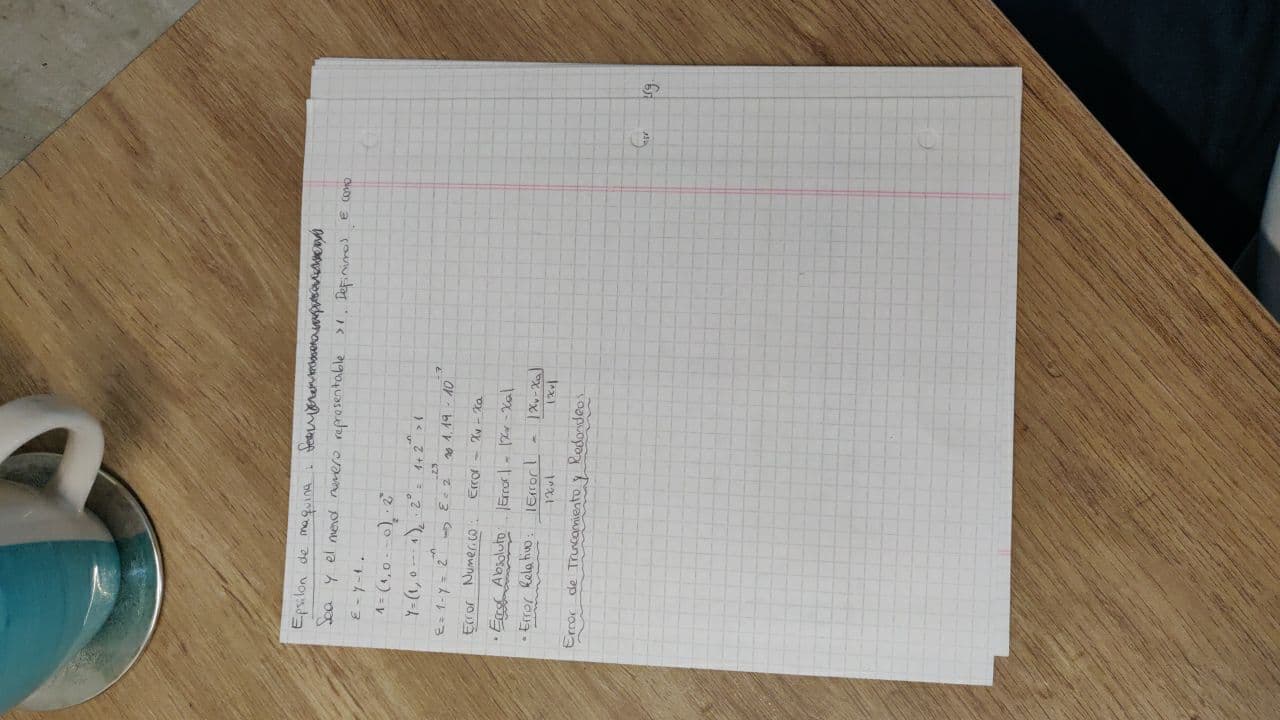 Epsilon de maquina:
Sea y el menor numero representable >1. Definimos ε como
ε = y-1.
1 = (1,0---0)₂ · 2⁰
y = (1,0---1)₂ · 2⁰ = 1+2⁻ⁿ >1
ε = 1-y = 2⁻ⁿ => ε = 2⁻²³ ≈ 1,19 · 10⁻⁷
Error Numérico: Error = xᵥ - xₐ
· Error Absoluto: |Error| = |xᵥ - xₐ|
· Error Relativo: |Error| / |xᵥ| = |xᵥ - xₐ| / |xᵥ|
Error de Truncamiento y Redondeos